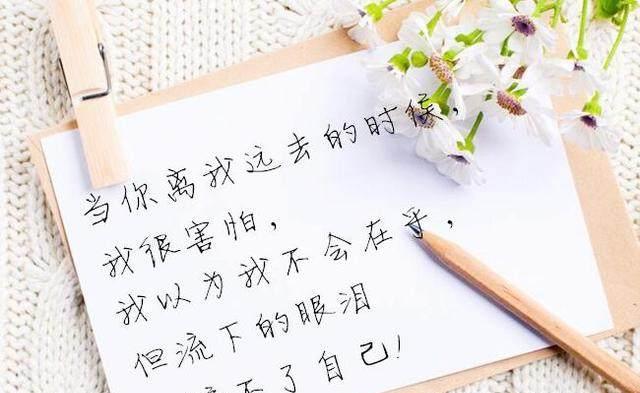 当你离我远去的时候，
我很害怕，
我以为我不会在乎，
但流下的眼泪
不了自己！